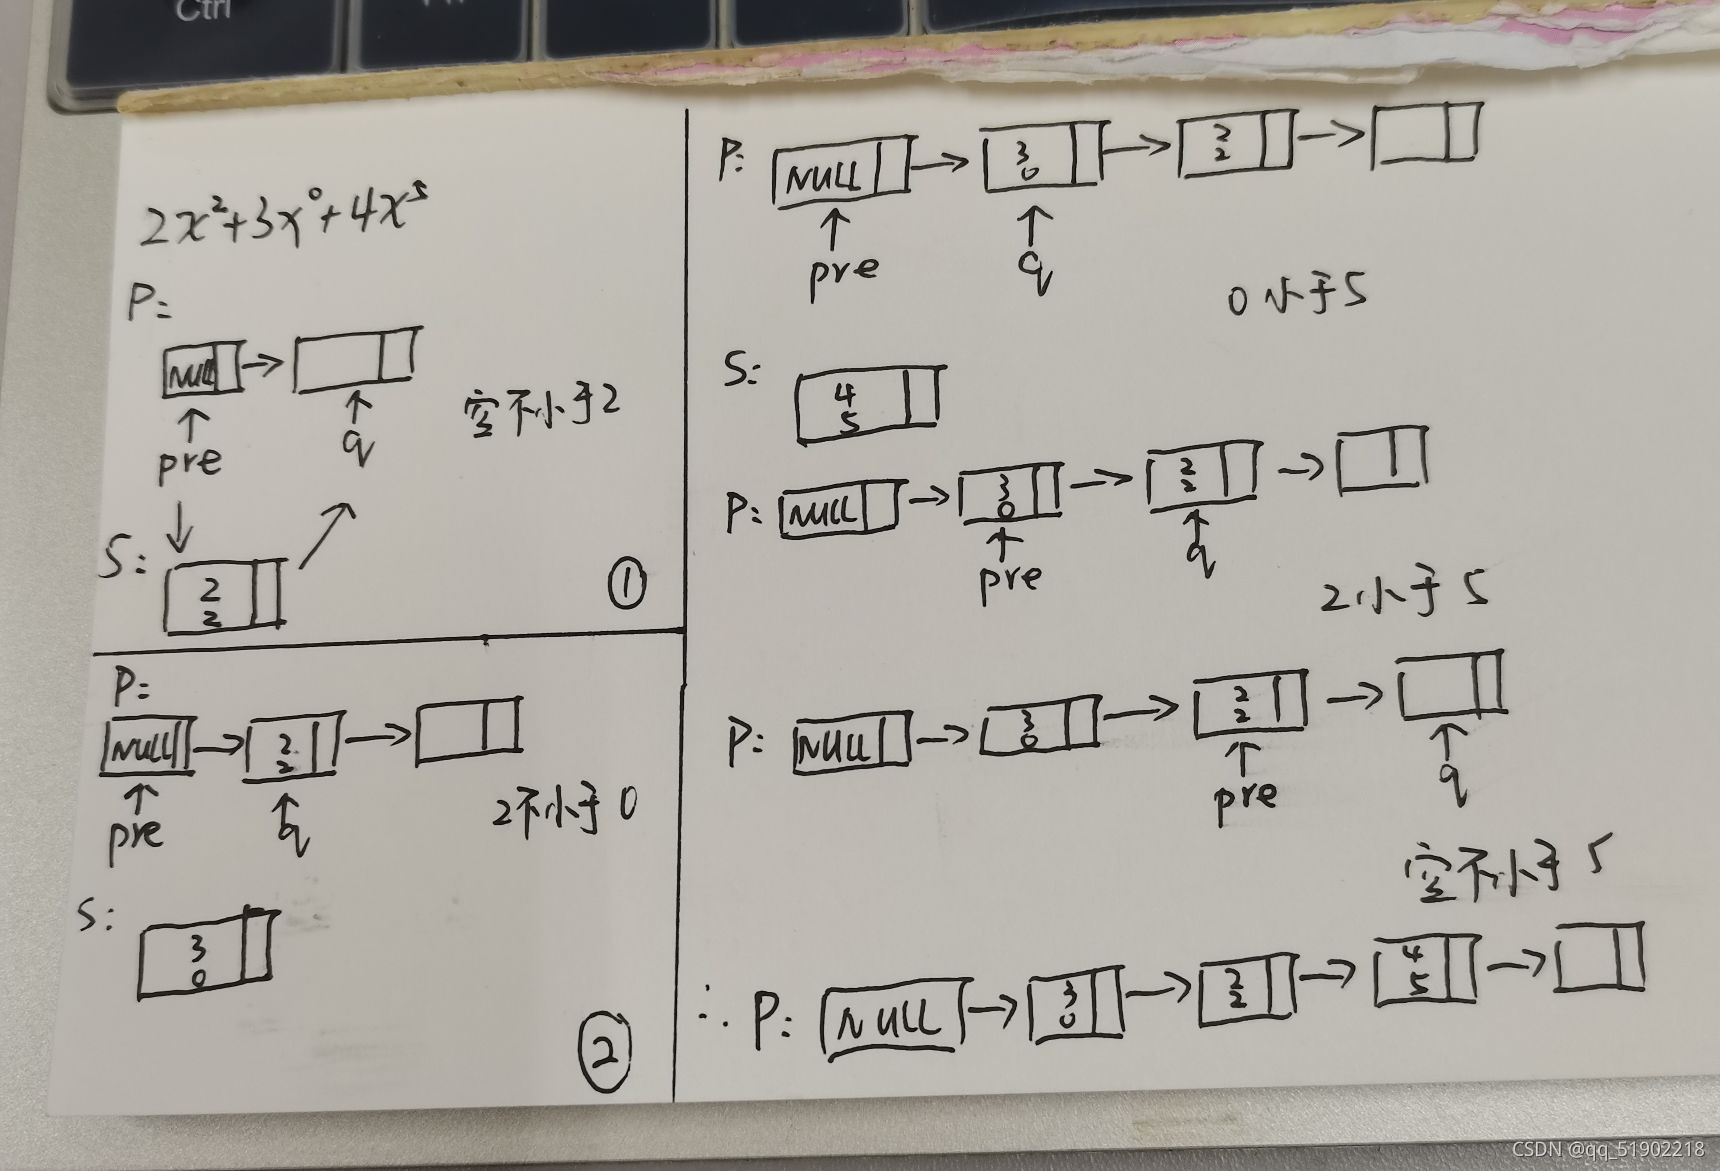 Ctrl
2x²+3x⁰+4x⁵
P:
NULL
pre q
空不小于2
S:
2
2
①
P:
NULL 2
2
pre q
2不小于0
S:
3
0
②
P: NULL 3 2
0 2
pre q
0小于5
S: 4
5
P: NULL 3 2
0 2
pre q
2小于5
P: NULL 3 2
0 2
pre q
空不小于5
∴ P: NULL 3 2 4
0 2 5
CSDN @qq_51902218